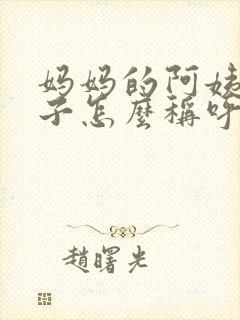 妈妈的阿姨
子怎麼稱呼
趙曙光